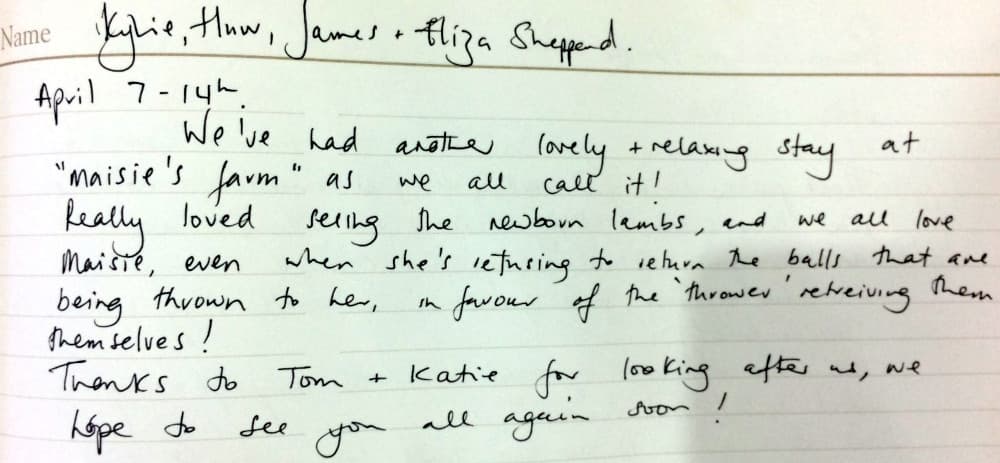 Name Kylie, Huw, James + Eliza Sheppard.
April 7 - 14th.
We've had another lovely + relaxing stay at
"maisie's farm" as we all call it!
Really loved seeing the newborn lambs, and we all love
Maisie, even when she's refusing to return the balls that are
being thrown to her, in favour of the 'thrower' retreiving them
themselves!
Thanks to Tom + Katie for looking after us, we
hope to see you all again soon!